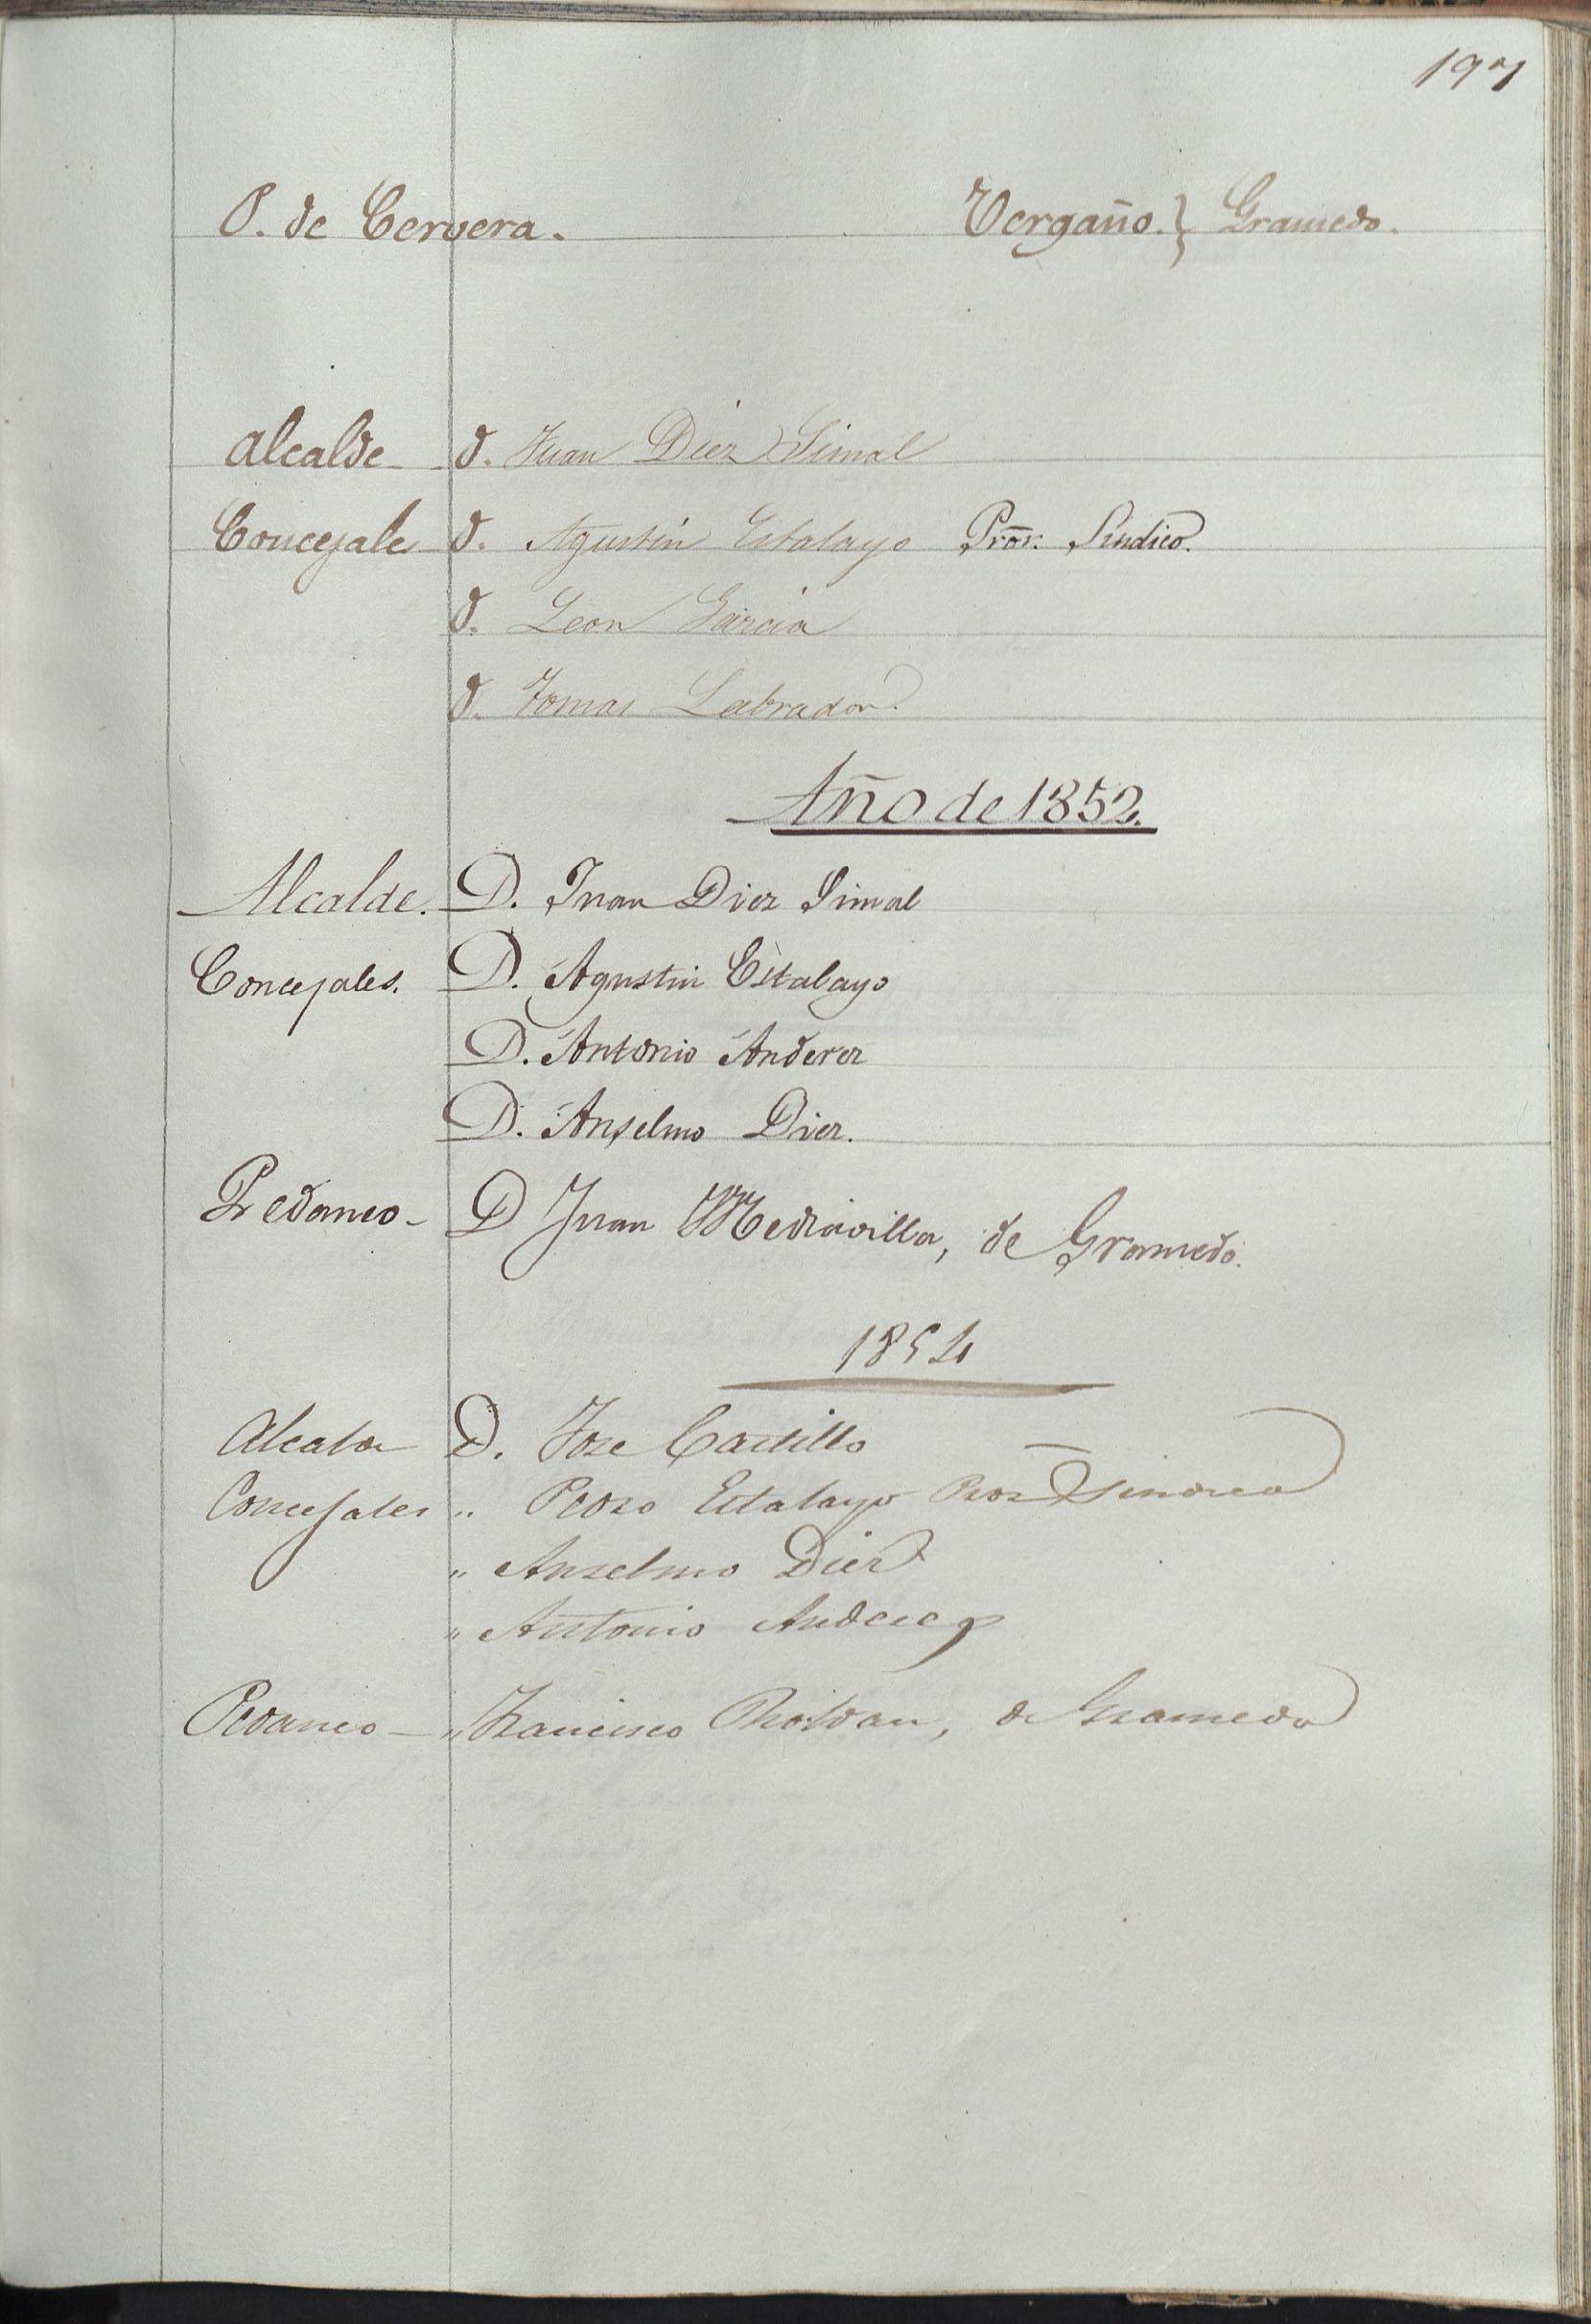 197
P. de Cervera. Vergaño.} Gramedo.
Alcalde D. Juan Diez Simal
Concejale D. Agustin Estalayo Prõr. Sindico.
D. Leon Garcia
D. Tomas Labrador.
Año de 1852.
Alcalde. D. Juan Diez Simal
Concejales. D. Agustin Estalayo
D. Antonio Anderez
D. Anselmo Diez.
Pedaneo - D Juan Mediavilla, de Gramedo.
1854
Alcalde D. Jose Castillo
Concejales " Pedro Estalayo Pror Sindico
" Anselmo Diez
" Antonio Anderez
Pedaneo - " Francisco Roldan, de Gramedo